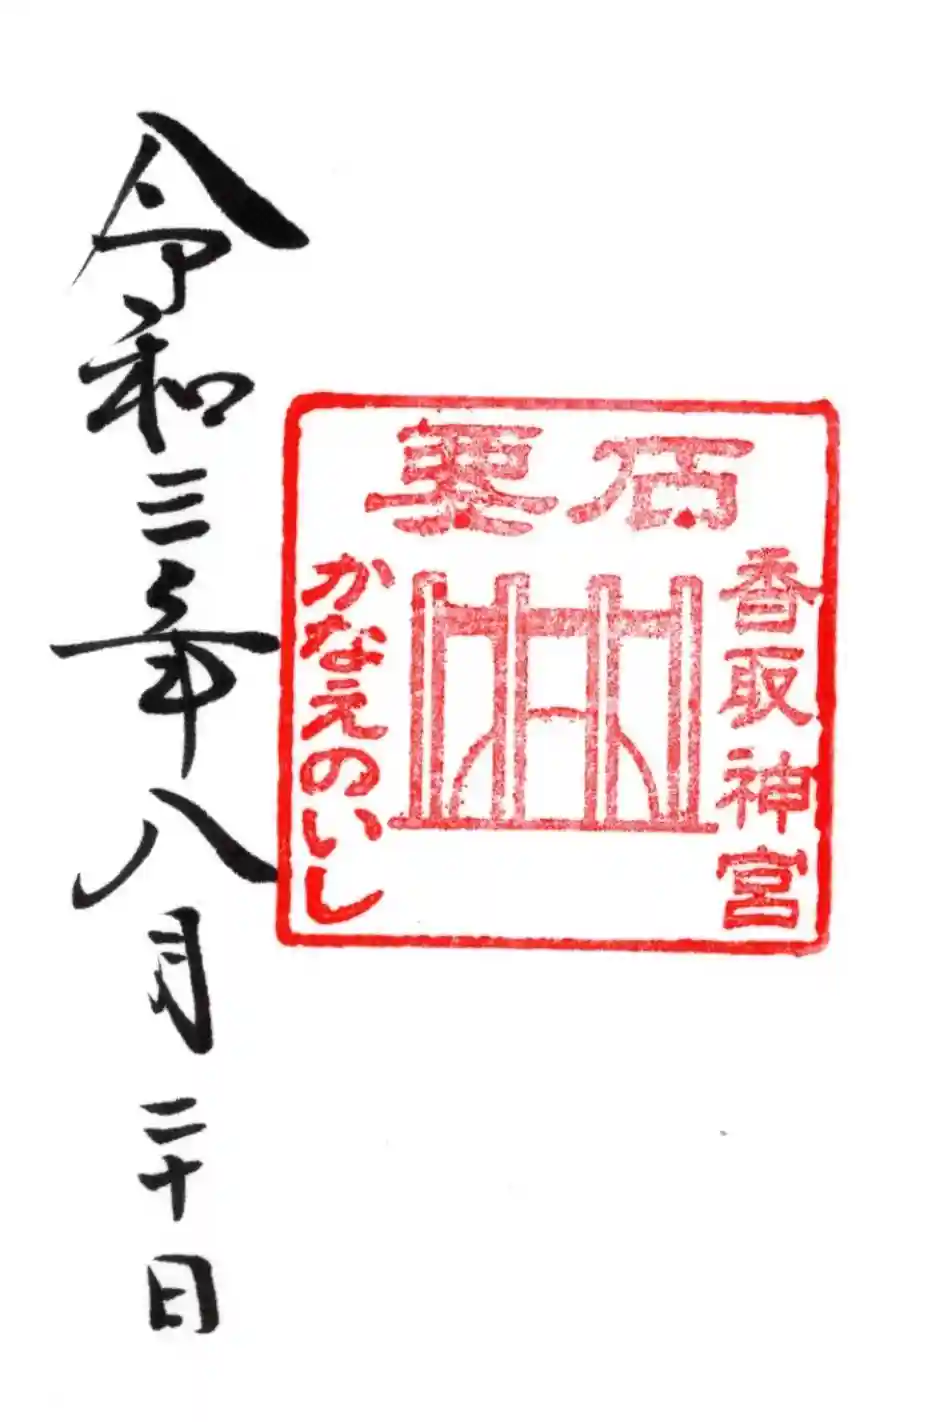 要石
香取神宮
かなえのいし
令和三年八月二十日